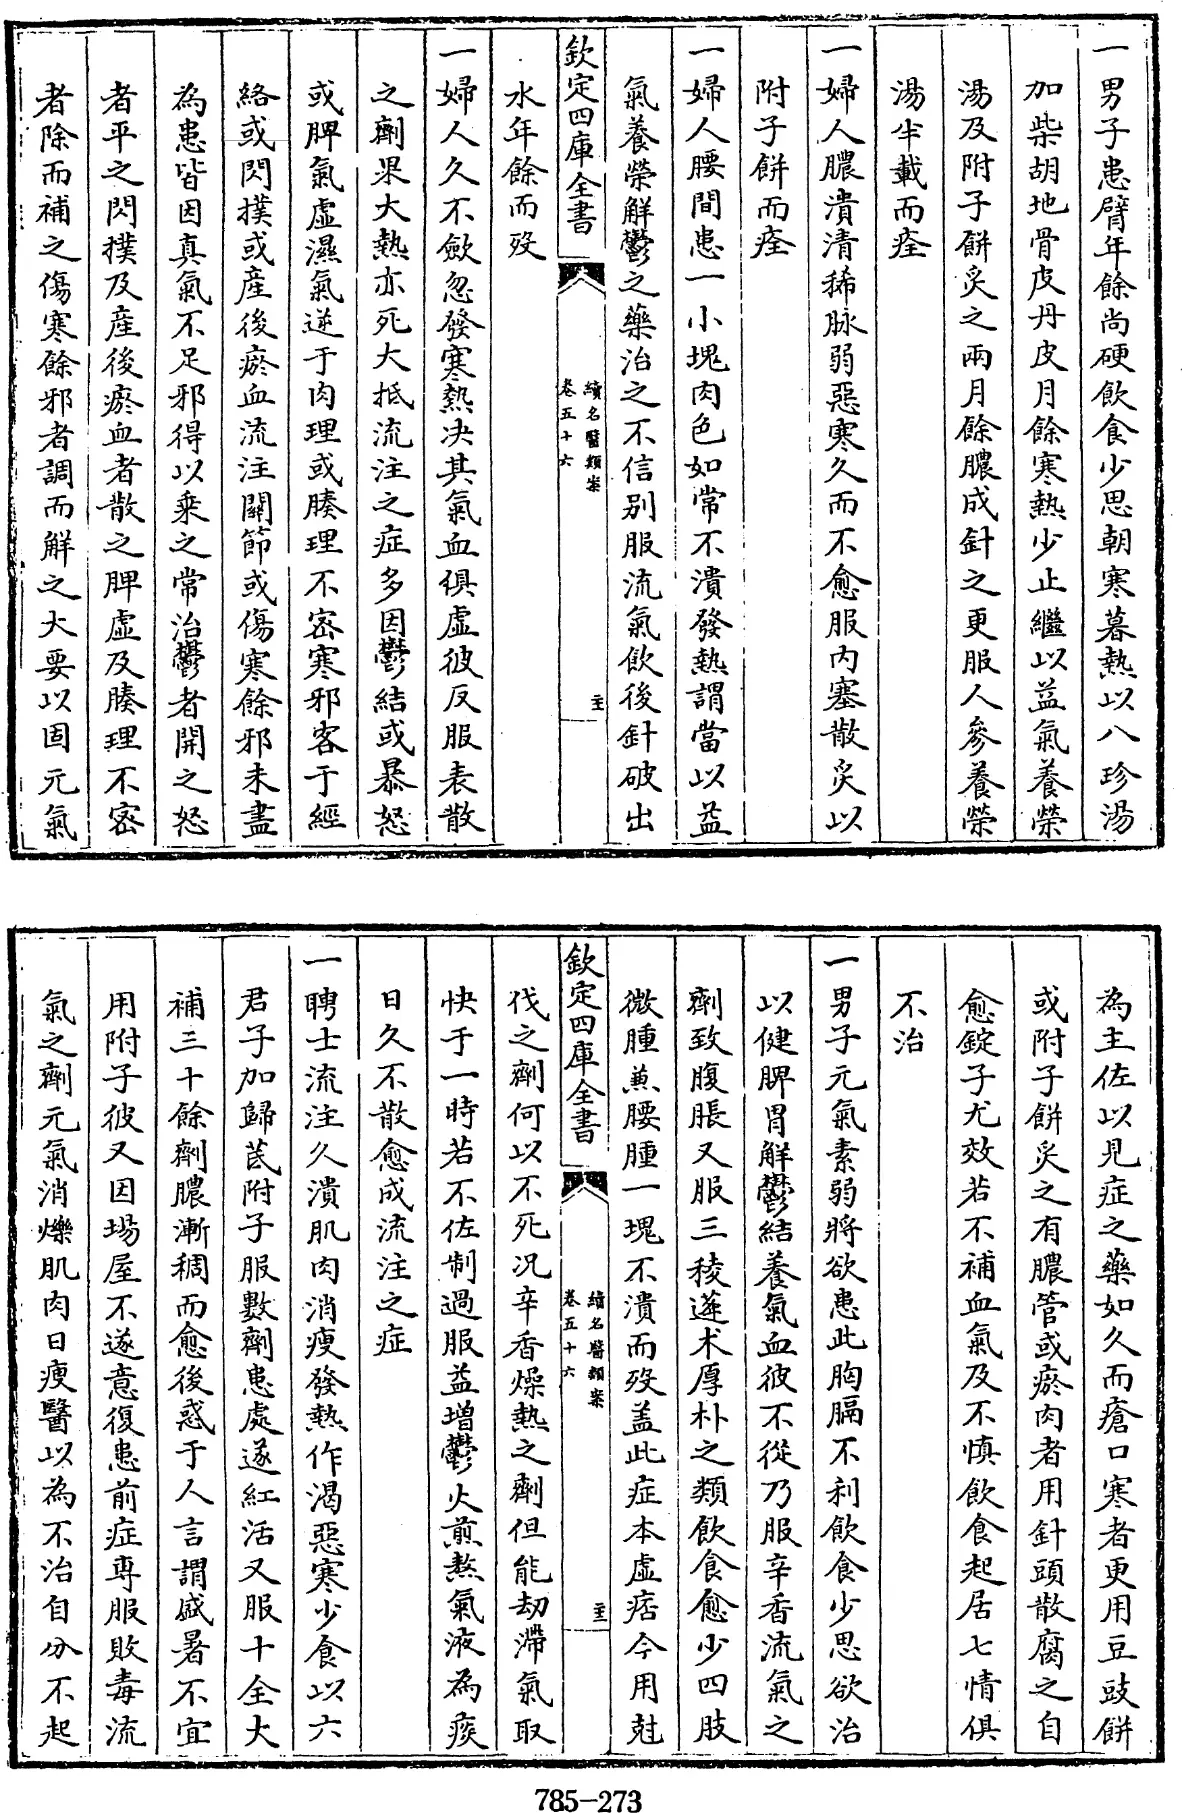 一男子患臂年餘尚硬飲食少思朝寒暮熱以八珍湯
加柴胡地骨皮丹皮月餘寒熱少止繼以益氣養榮
湯及附子餅炙之兩月餘膿成針之更服人參養榮
湯半載而痊
一婦人膿潰清稀脉弱惡寒久而不愈服内塞散炙以
附子餅而痊
一婦人腰間患一小塊肉色如常不潰發熱謂當以益
氣養榮解鬱之藥治之不信别服流氣飲後針破出
欽定四庫全書
續名醫類案
卷五十六
水年餘而歿
一婦人久不歛忽發寒熱决其氣血俱虛彼反服表散
之劑果大熱亦死大抵流注之症多因鬱結或暴怒
或脾氣虛濕氣逆于肉理或腠理不密寒邪客于經
絡或閃撲或産後瘀血流注關節或傷寒餘邪未盡
為患皆因真氣不足邪得以乘之常治鬱者開之怒
者平之閃撲及産後瘀血者散之脾虛及腠理不密
者除而補之傷寒餘邪者調而解之大要以固元氣
為主佐以見症之藥如久而瘡口寒者更用豆豉餅
或附子餅炙之有膿管或瘀肉者用針頭散腐之自
愈錠子尤效若不補血氣及不慎飲食起居七情俱
不治
一男子元氣素弱將欲患此胸膈不利飲食少思欲治
以健脾胃解鬱結養氣血彼不從乃服辛香流氣之
劑致腹脹又服三稜蓬术厚朴之類飲食愈少四肢
微腫兼腰腫一塊不潰而歿盖此症本虛痞今用尅
欽定四庫全書
續名醫類案
卷五十六
伐之劑何以不死况辛香燥熱之劑但能刼滯氣取
快于一時若不佐制過服益增鬱火煎熬氣液為痰
日久不散愈成流注之症
一聘士流注久潰肌肉消瘦發熱作渴惡寒少食以六
君子加歸芪附子服數劑患處遂紅活又服十全大
補三十餘劑膿漸稠而愈後惑于人言謂盛暑不宜
用附子彼又因塲屋不遂意復患前症専服敗毒流
氣之劑元氣消爍肌肉日瘦醫以為不治自分不起
785-273